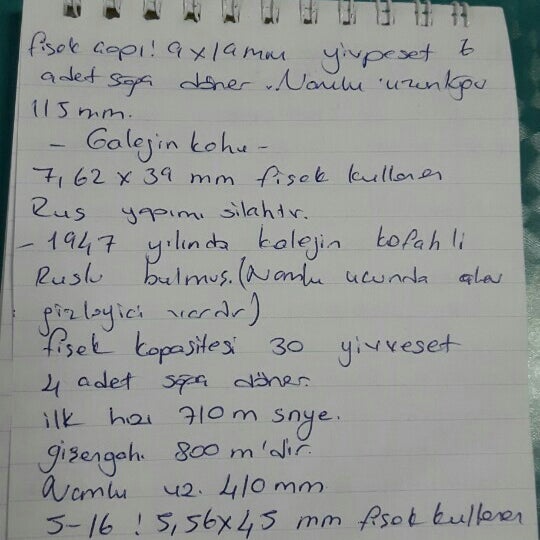 fişek çapı! 9x19mm yivveset 6
adet sağa döner. Namlu uzunluğu
115mm.
- Galejinkohu -
7,62 x 39 mm fişek kullanır
Rus yapımı silahtır.
- 1947 yılında kalejin kofahli
Ruslu bulmuş. (Namlu ucunda alev
gizleyici vardır)
fişek kapasitesi 30 yivveset
4 adet sağa döner.
ilk hızı 710 m snye.
gizengah. 800 m'dir.
Namlu uz. 410 mm
5-16 ! 5,56x45 mm fişek kullanır